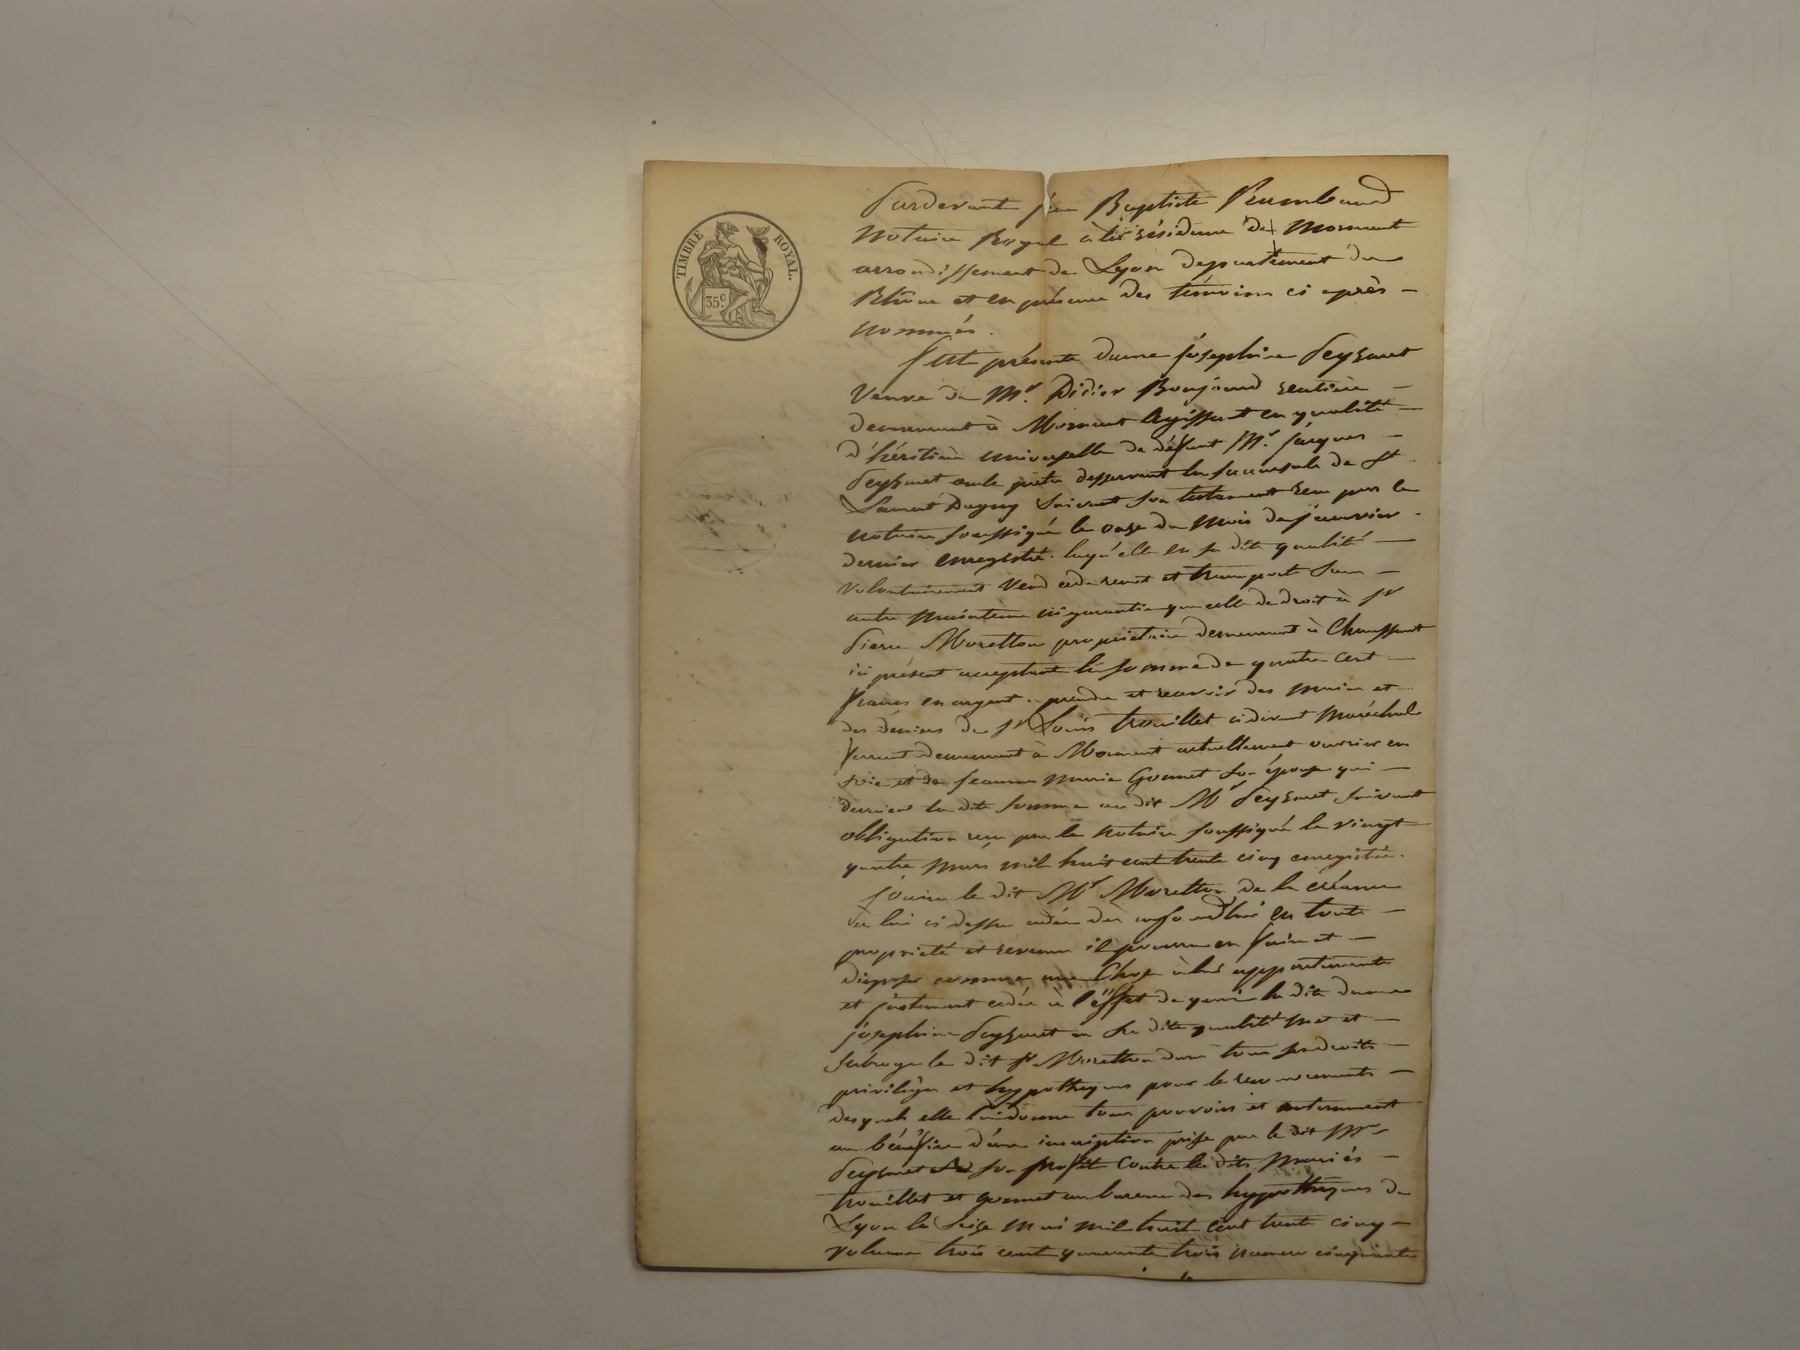 TIMBRE ROYAL.
35 c
Pardevant Jean Baptiste Rambaud
Notaire Royal à la résidence de Mornant
arrondissement de Lyon departement du
Rhône et en présence des témoins ci après -
nommés.
Fut présente dame Joséphine Peyzaret
Veuve de Mr. Didier Bonjand rentière -
demeurant à Mornant Agissant en qualité -
d'héritière universelle de défunt Mr. Jacques -
Peyzaret prêtre desservant la succursale de St
Laurent Dagny Suivant son testament reçu par le
notaire soussigné le onze du mois de janvier -
dernier enregistré. laquelle en sa dite qualité -
volontairement Vend cede remet et transporte sans -
autre maintenue ni garantie que celle de droit à Sr
Pierre Moretton propriétaire demeurant à Chaussant
ici présent acceptant la somme de quatre cent -
francs en argent a prendre et recevoir des mains et
des deniers de Sr Louis trouillet ci devant Maréchal
ferrant demeurant à Mornant actuellement ouvrier en
soie et de Jeanne Marie Goumet son épouse qui -
devaient la dite somme au dit Mr Peyzaret suivant
obligation reçu par le notaire soussigné le vingt
quatre mars mil huit cent trente cinq enregistrée.
Jouira le dit Mr Moretton de la créance
à lui ci dessus cédée dès aujourdhui en toute -
propriété et revenu il pourra en faire et -
disposer comme une Chose à lui appartenante
et justement cédée à l'éffet de quoi la dite dame
joséphine Peyzaret en sa dite qualité met et -
subroge le dit Sr Moretton dans tous ses droits -
privilèges et hypothèques pour le recouvrement -
desquels elle lui donne tous pouvoirs et notamment
au bénéfice d'une inscription prise par le dit Mr
Peyzaret à son profit Contre les dits Mariés -
trouillet et goumet au bureau des hypothèques de
Lyon le Seize Mai mil huit cent trente cinq -
volume trois cent quarante trois numero cinquante